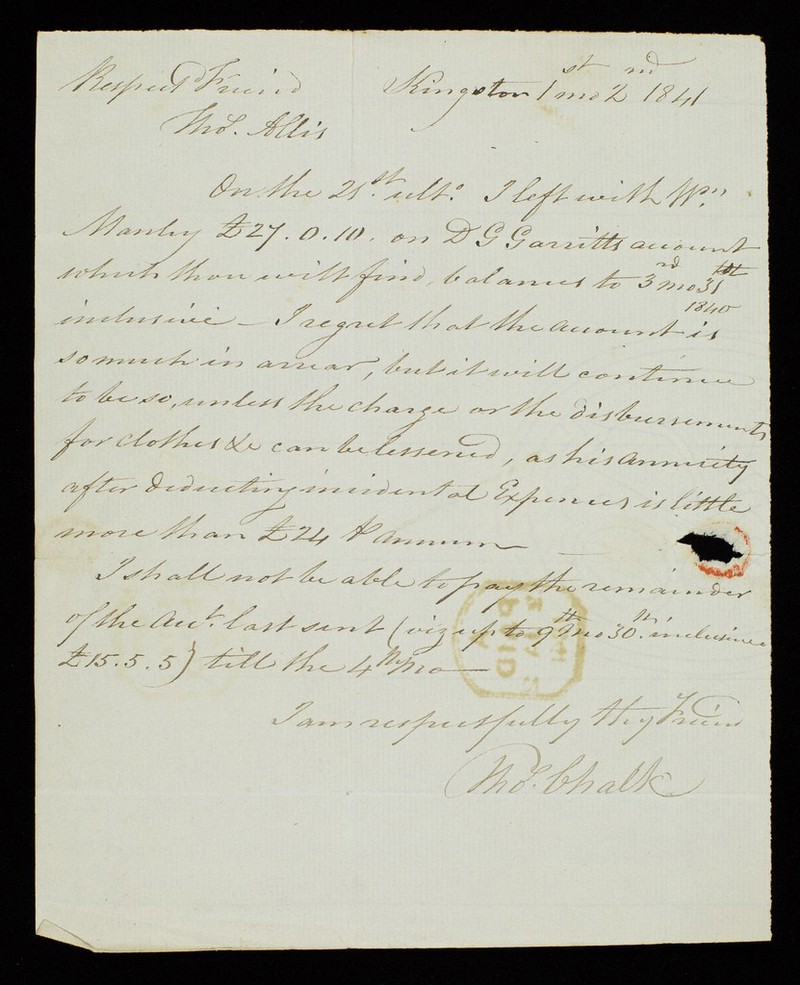 Respectd Friend Kingston 1st mo 2nd 1841
Thos. Allis
On the 21st. ulto. I left with Wm.
Manley £27. 0. 10. on D G Garritts account
which thou wilt find, balances to 3rd mo 31
1840
inclusive – I regret that the account is
so much in arrear, but it will continue
to be so, unless the charge or the disbursements
for clothes &c can be lessened, as his annuity
after deducting incidental Expences is little
more than £24 P annum –
I shall not be able to pay the remainder
of the Acct. last sent (viz up to 9th mo 30th. inclusive
£15. 5. 5) till the 4th Mo –
I am respectfully thy Friend
Thos. Chalk
PAID